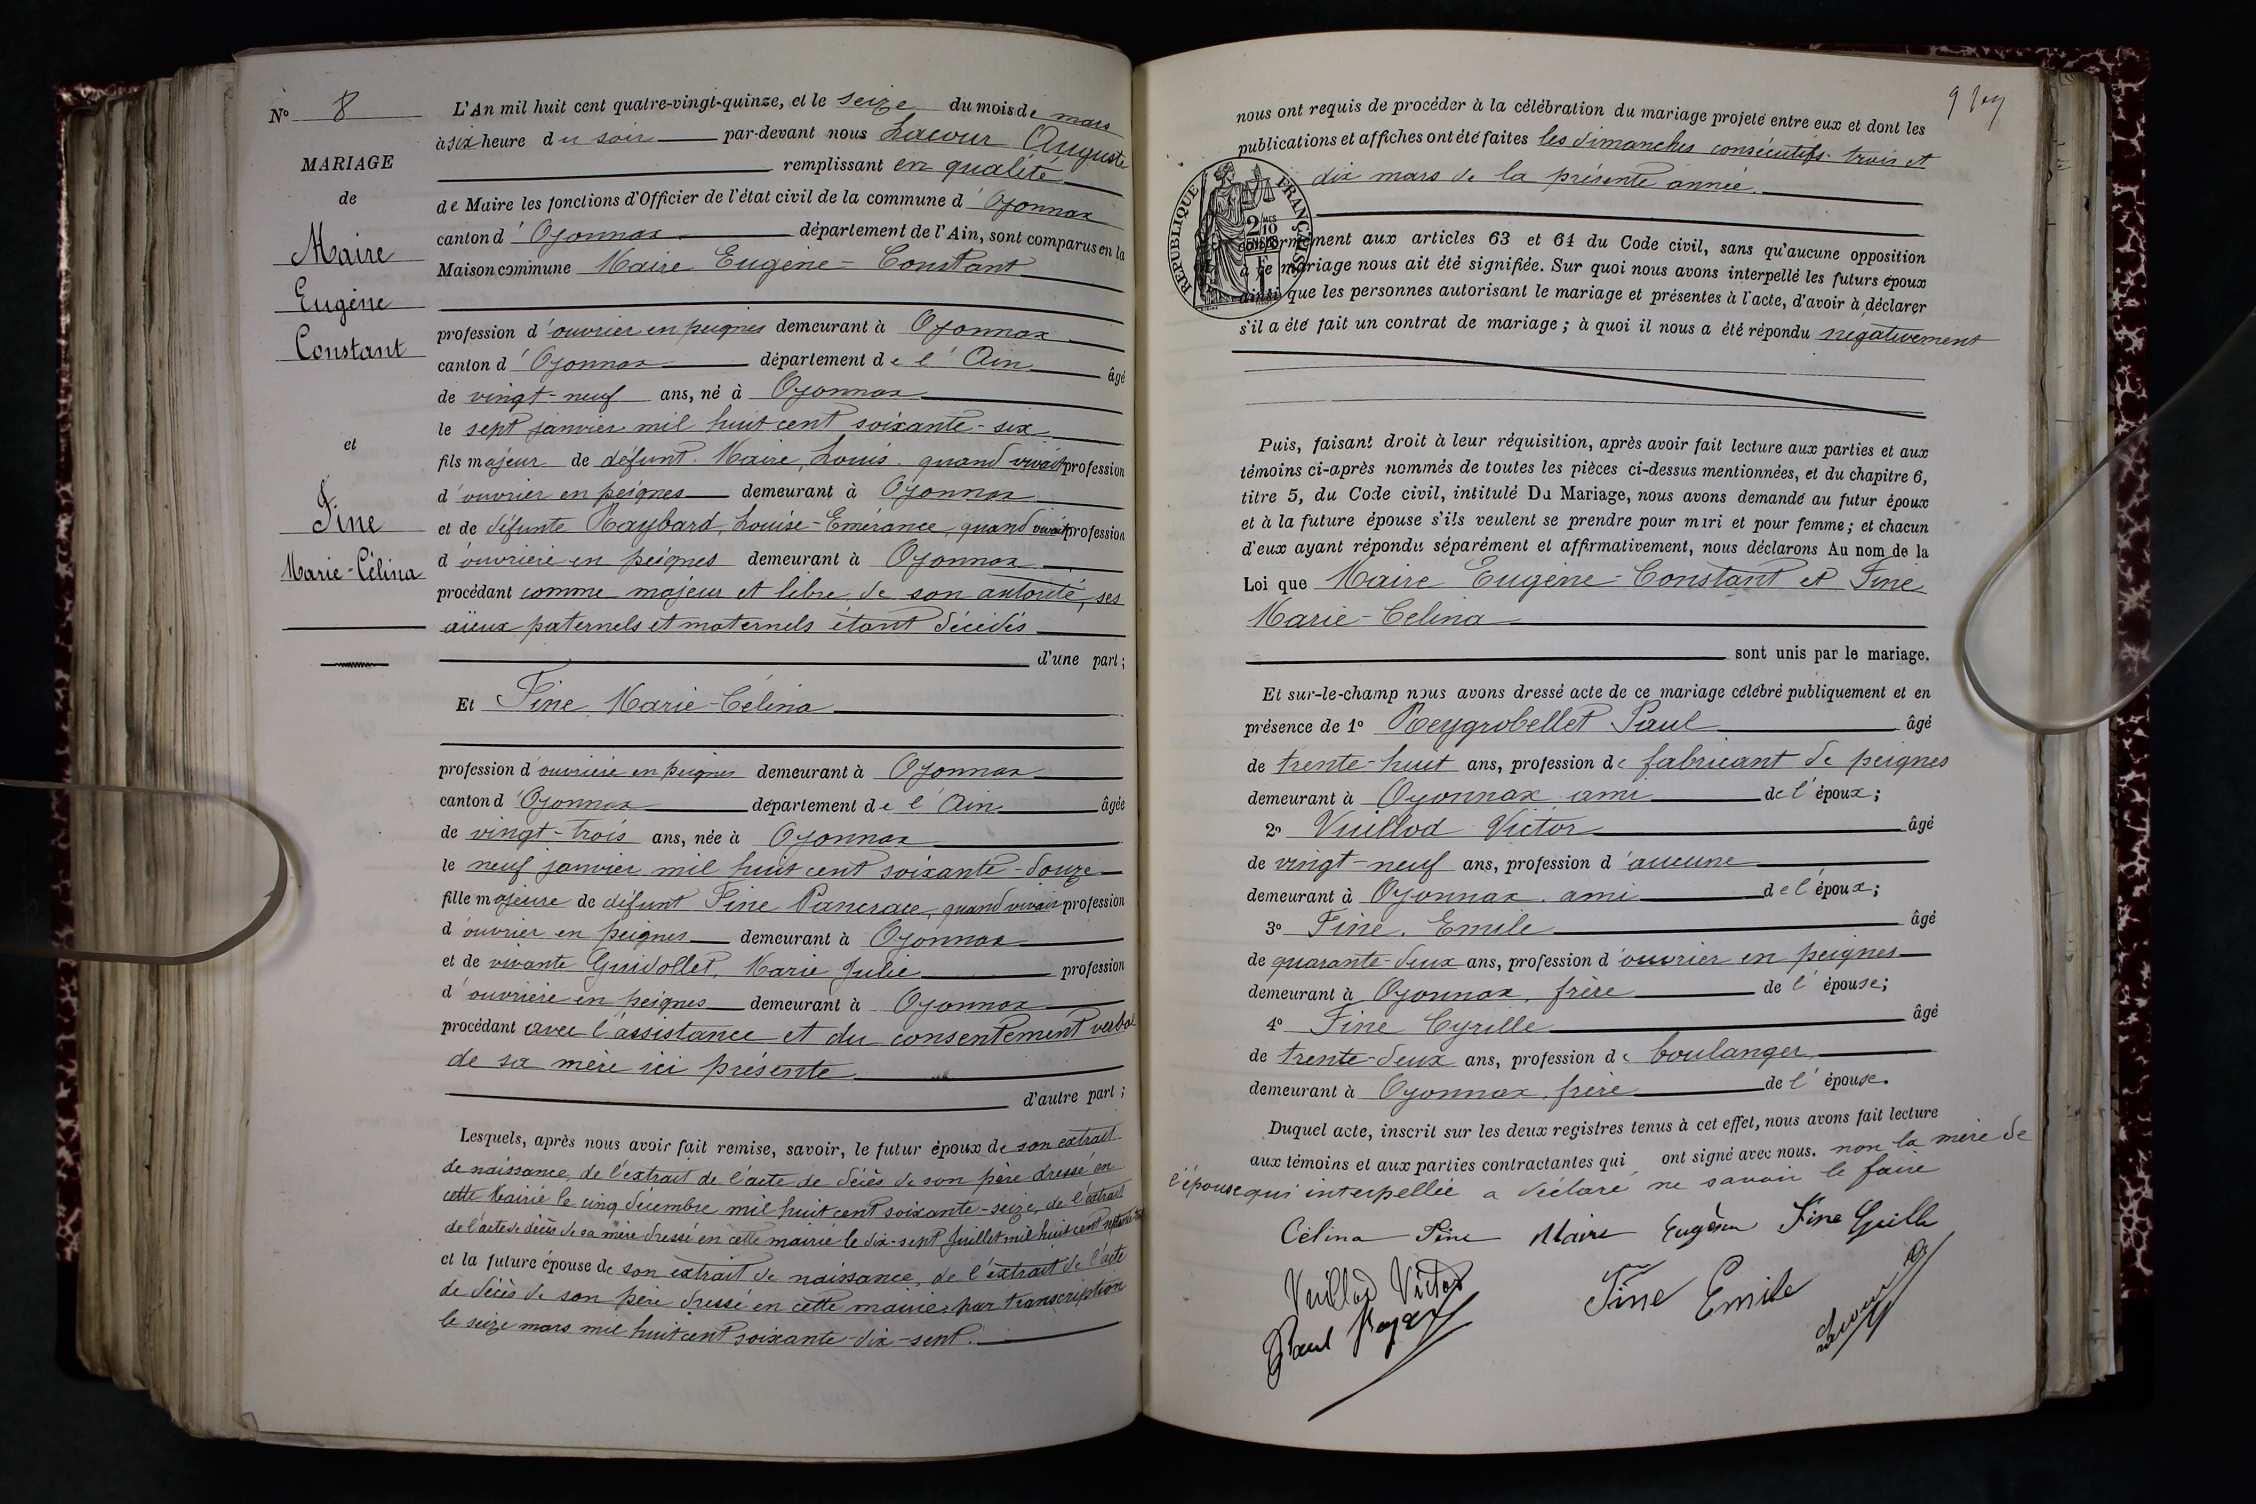 N° 8
MARIAGE
de
Maire
Eugène
Constant
et
Fine
Marie-Célina
L'An mil huit cent quatre-vingt-quinze, et le seize du mois de mars
à six heure du soir par-devant nous Lacour Auguste
remplissant en qualité
de Maire les fonctions d'Officier de l'état civil de la commune d'Oyonnax
canton d'Oyonnax département de l'Ain, sont comparus en la
Maison commune Maire Eugène-Constant
profession d'ouvrier en peignes demeurant à Oyonnax
canton d'Oyonnax département de l'Ain âgé
de vingt-neuf ans, né à Oyonnax
le sept janvier mil huit cent soixante-six
fils majeur de défunt Maire, Louis quand vivait profession
d'ouvrier en peignes demeurant à Oyonnax
et de défunte Raybard, Louise-Emérance, quand vivait profession
d'ouvrière en peignes demeurant à Oyonnax
procédant comme majeur et libre de son autorité, ses
aïeux paternels et maternels étant décédés
d'une part;
Et Fine Marie-Célina
profession d'ouvrière en peignes demeurant à Oyonnax
canton d'Oyonnax département de l'Ain âgée
de vingt-trois ans, née à Oyonnax
le neuf janvier mil huit cent soixante-douze
fille majeure de défunt Fine Pancrace, quand vivait profession
d'ouvrier en peignes demeurant à Oyonnax
et de vivante Guidollet, Marie Julie profession
d'ouvrière en peignes demeurant à Oyonnax
procédant avec l'assistance et du consentement verbal
de sa mère ici présente
d'autre part;
Lesquels, après nous avoir fait remise, savoir, le futur époux de son extrait
de naissance, de l'extrait de l'acte de décès de son père dressé en
cette Mairie le cinq décembre mil huit cent soixante-seize, de l'extrait
de l'acte de décès de sa mère dressé en cette mairie le dix-sept Juillet mil huit cent
et la future épouse de son extrait de naissance, de l'extrait de l'acte
de décès de son père dressé en cette mairie par transcription
le seize mars mil huit cent soixante-dix-sept.
nous ont requis de procéder à la célébration du mariage projeté entre eux et dont les
publications et affiches ont été faites les dimanches consécutifs trois et
dix mars de la présente année.
RÉPUBLIQUE FRANÇAISE
2/10
conformément aux articles 63 et 64 du Code civil, sans qu'aucune opposition
à ce mariage nous ait été signifiée. Sur quoi nous avons interpellé les futurs époux
ainsi que les personnes autorisant le mariage et présentes à l'acte, d'avoir à déclarer
s'il a été fait un contrat de mariage; à quoi il nous a été répondu négativement
Puis, faisant droit à leur réquisition, après avoir fait lecture aux parties et aux
témoins ci-après nommés de toutes les pièces ci-dessus mentionnées, et du chapitre 6,
titre 5, du Code civil, intitulé Du Mariage, nous avons demandé au futur époux
et à la future épouse s'ils veulent se prendre pour mari et pour femme; et chacun
d'eux ayant répondu séparément et affirmativement, nous déclarons Au nom de la
Loi que Maire Eugène-Constant et Fine
Marie-Celina
sont unis par le mariage.
Et sur-le-champ nous avons dressé acte de ce mariage célébré publiquement et en
présence de 1° Reygrobellet Paul âgé
de trente-huit ans, profession de fabricant de peignes
demeurant à Oyonnax ami de l'époux;
2° Vuillod Victor âgé
de vingt-neuf ans, profession d'aucune
demeurant à Oyonnax, ami de l'époux;
3° Fine, Emile âgé
de quarante-deux ans, profession d'ouvrier en peignes
demeurant à Oyonnax, frère de l'épouse;
4° Fine Cyrille âgé
de trente-deux ans, profession de boulanger
demeurant à Oyonnax, frère de l'épouse.
Duquel acte, inscrit sur les deux registres tenus à cet effet, nous avons fait lecture
aux témoins et aux parties contractantes qui ont signé avec nous. non la mère de
l'épouse qui interpellée a déclaré ne savoir le faire
Célina Fine Maire Eugène Fine Cyrille
Vuillod Victor Fine Emile
Paul